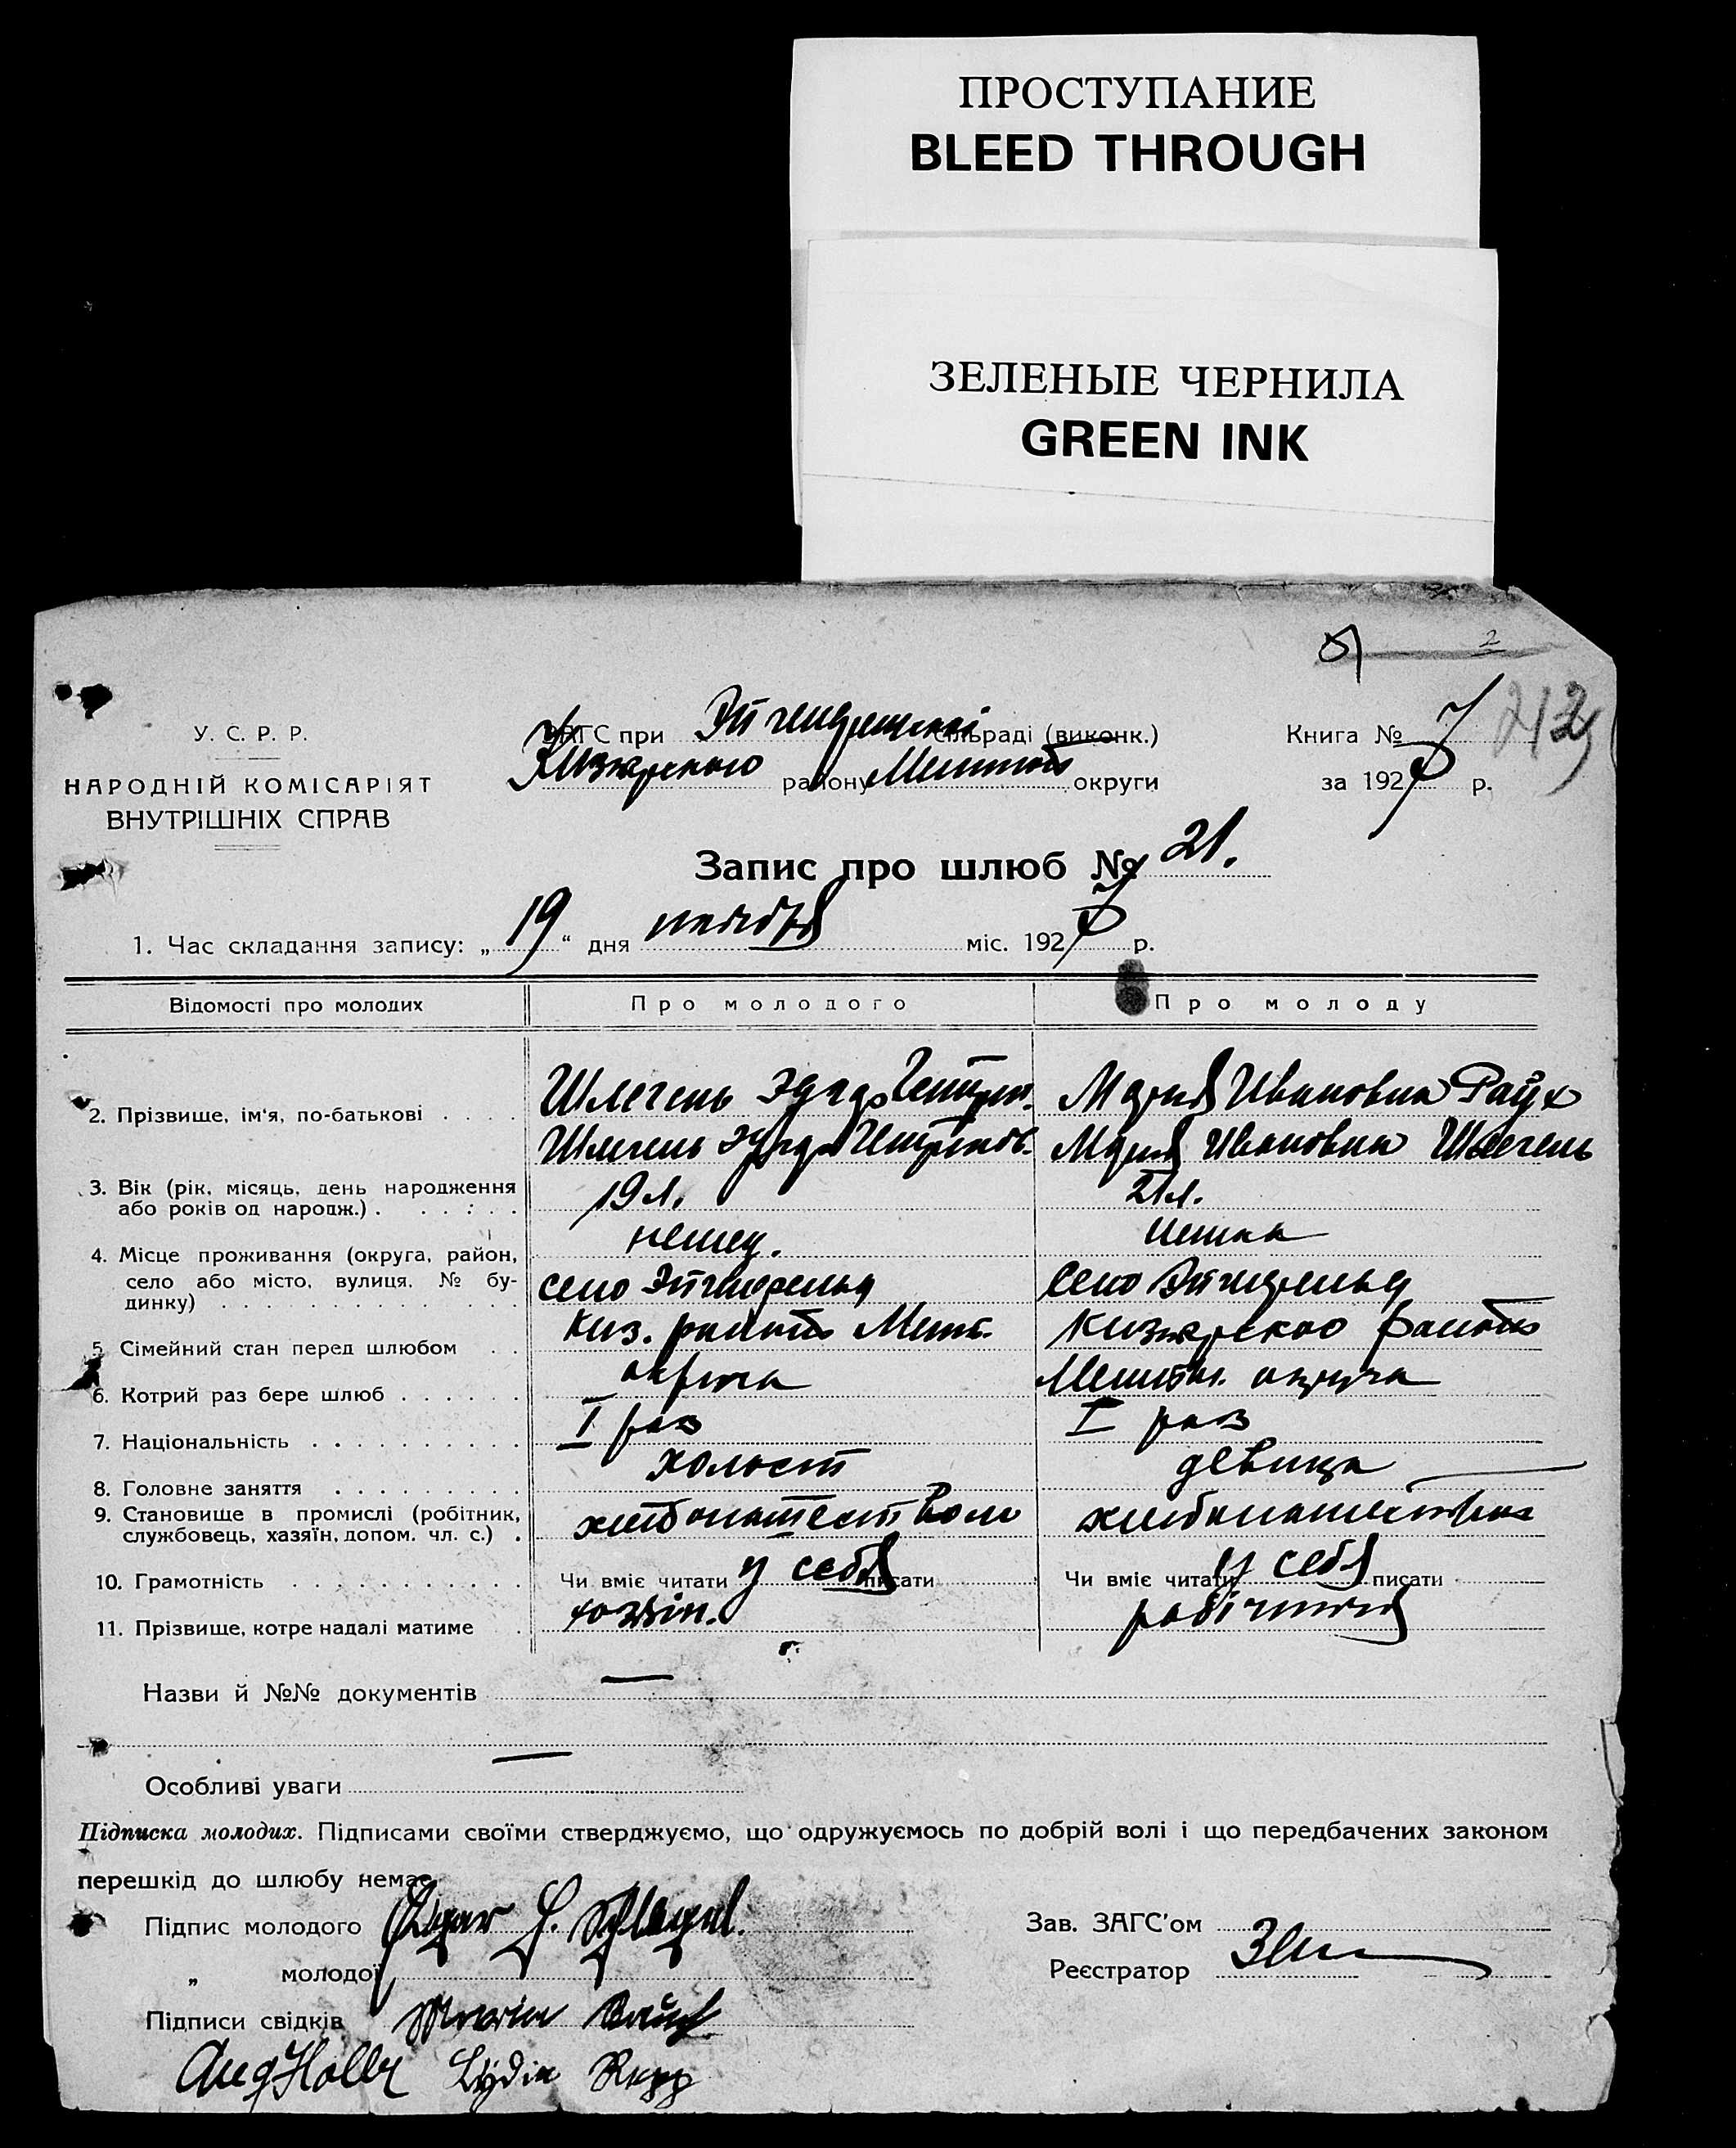 ПРОСТУПАНИЕ
BLEED THROUGH
ЗЕЛЕНЫЕ ЧЕРНИЛА
GREEN INK
2
У. С. Р. Р.
НАРОДНІЙ КОМІСАРІЯТ
ВНУТРІШНІХ СПРАВ
ЗАГС при сільраді (виконк.)
району округи
Книга № 7
212
за 1927 р.
Запис про шлюб № 21.
1. Час складання запису: „ 19 “ дня міс. 1927 р.
Відомості про молодих
Про молодого
Про молоду
2. Прізвище, ім‘я, по-батькові
Шлегель
Мария Ивановна Раух
Шлегель
Мария Ивановна Шлегель
3. Вік (рік, місяць, день народження
або років од народж.)
19 л.
21 л.
немец.
немка
4. Місце проживання (округа, район,
село або місто, вулиця, № бу-
динку)
село
село
5. Сімейний стан перед шлюбом
6. Котрий раз бере шлюб
округа
округа
7. Національність
I раз
I раз
холост
девица
8. Головне заняття
9. Становище в промислі (робітник,
службовець, хазяїн, допом. чл. с.)
хлебопашеством
10. Грамотність
Чи вміє читати у себя писати
Чи вміє читати у себя писати
11. Прізвище, котре надалі матиме
Назви й №№ документів
Особливі уваги
Підписка молодих. Підписами своїми стверджуємо, що одружуємось по добрій волі і що передбачених законом
перешкід до шлюбу немає.
Підпис молодого Edgar H. Schlegel.
Зав. ЗАГС’ом
„ молодої
Реєстратор
Підписи свідків Maria Rauch
Aug Holly Lydia Repp